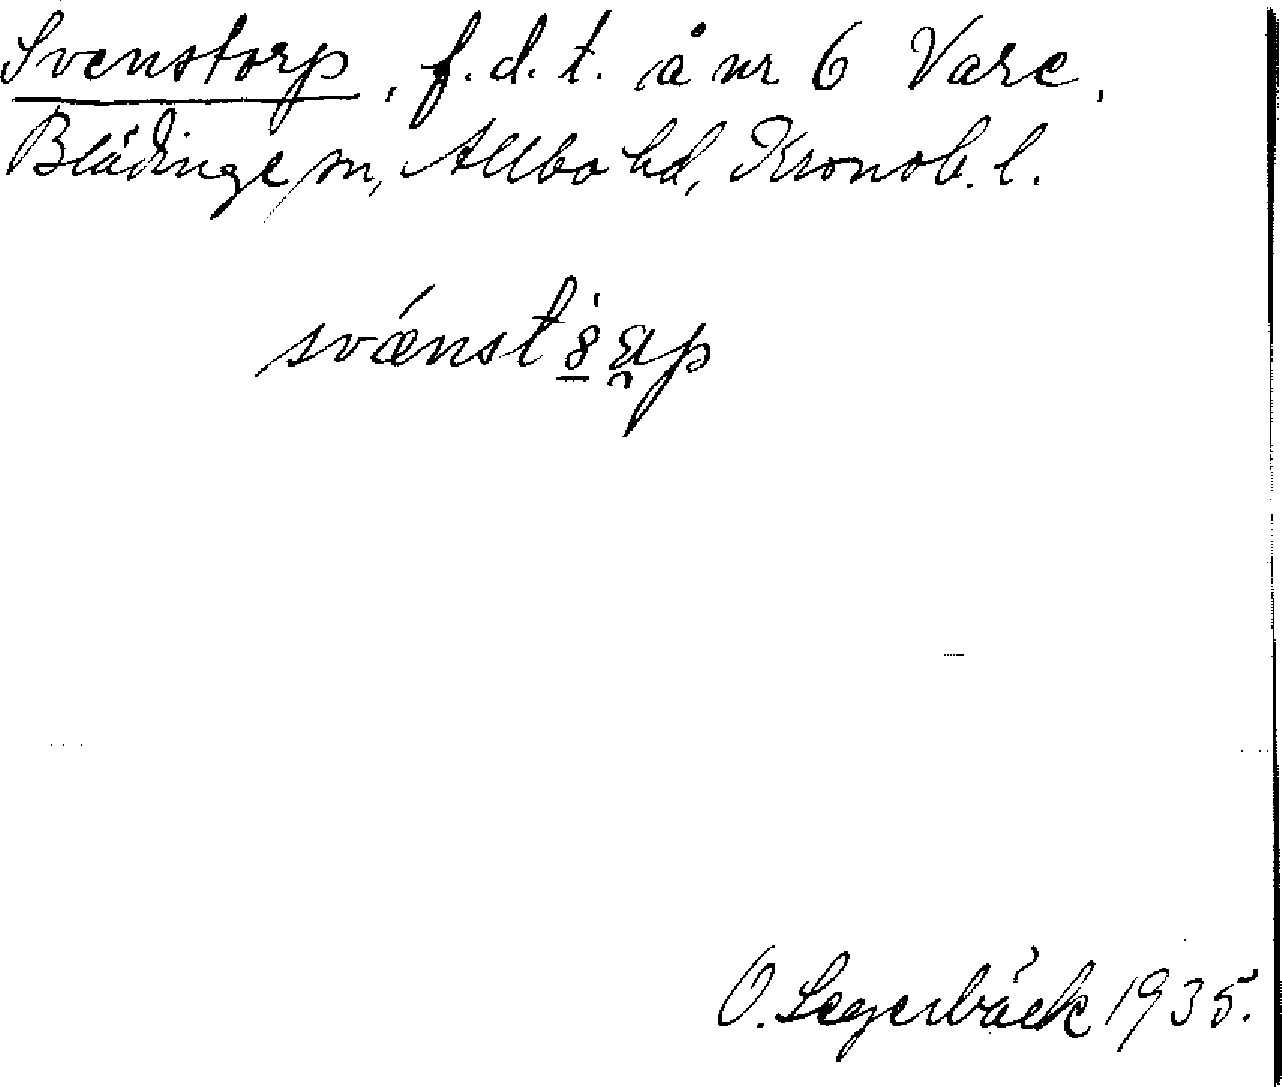 Svenstorp, f.d.t. å nr 6 Vare,
Blädinge sn, Allbo hd, Kronob. l.
O. Segerbäck 1935.